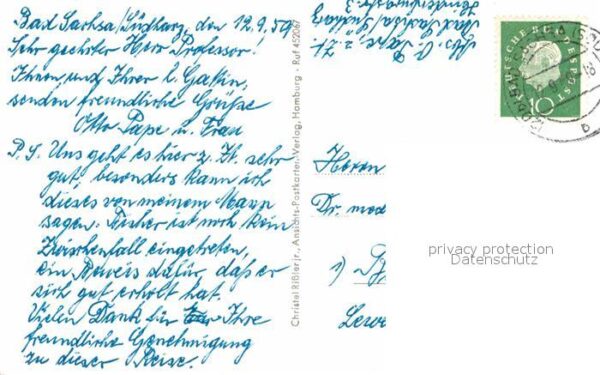 Bad Sachsa/Südharz, den 12.9.59
Sehr geehrter Herr Professor!
Ihnen und Ihrer l. Gattin,
senden freundliche Grüße
Otto Pape u. Frau
P.S. Uns geht es hier z. Zt. sehr
gut, besonders kann ich
dieses von meinem Mann
sagen. Bisher ist noch kein
Zwischenfall eingetreten,
ein Beweis dafür, daß er
sich gut erholt hat.
Vielen Dank für Ihre
freundliche Genehmigung
zu dieser Reise.
Christel Rißler jr., Ansichts-Postkarten-Verlag, Hamburg - Ruf 452067
Abs. O. Pape z. Zt.
Bad Sachsa/Südharz
DEUTSCHE BUNDESPOST
10
Herrn
Dr. med
privacy protection
Datenschutz